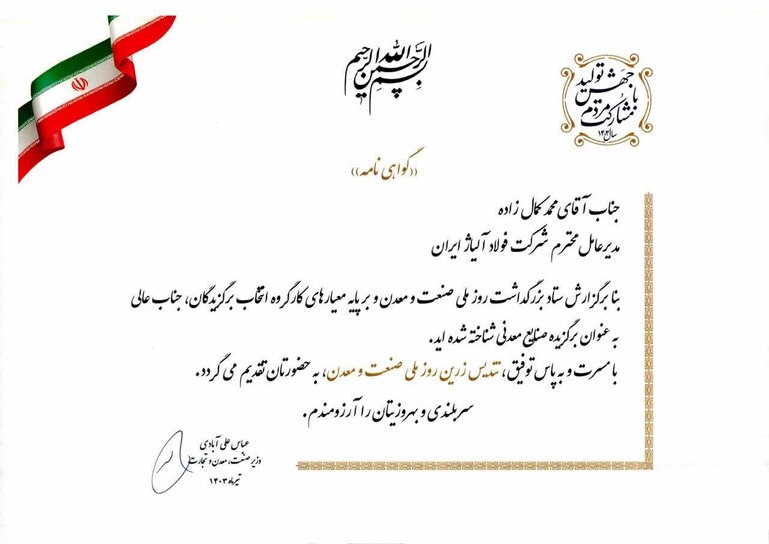 بسم الله الرحمن الرحیم
جهش تولید
با
مشارکت مردم
سال ۱۴۰۳
((گواهی نامه))
جناب آقای محمد کمال زاده
مدیرعامل محترم شرکت فولاد آلیاژ ایران
بنا برگزارش ستاد بزرگداشت روز ملی صنعت و معدن و بر پایه معیارهای کارگروه انتخاب برگزیدگان، جناب عالی
به عنوان برگزیده صنایع معدنی شناخته شده اید.
با مسرت و به پاس توفیق، تندیس زرین روز ملی صنعت و معدن، به حضورتان تقدیم می گردد.
سربلندی و بهروزیتان را آرزومندم.
عباس علی آبادی
وزیر صنعت، معدن و تجارت
تیرماه ۱۴۰۳